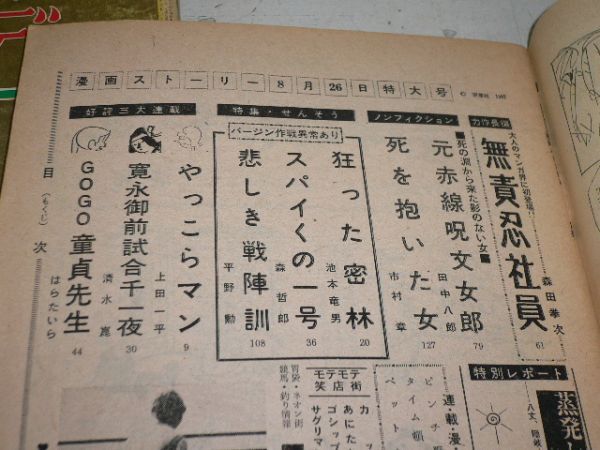 漫画ストーリー8月26日特大号
力作長編
大人のマンガ界に初登場!
無責忍社員
森田拳次
61
ノンフィクション
■死の淵から来た影のない女■
元赤線呪文女郎
田中八郎
79
死を抱いた女
市村章
127
特集・せんそう
バージン作戦異常あり
狂った密林
池本竜男
20
スパイくの一号
森哲郎
36
悲しき戦陣訓
平野勲
108
好評三大連載
やっこらマン
上田一平
9
寛永御前試合千一夜
清水崑
30
GOGO童貞先生
はらたいら
44
目(もくじ)次
特別レポート
蒸発
連・載・漫・
ピンチ
タイム
ペット
モテモテ笑店街
あにた
ゴシップ
サグリマ
胃袋・ネオン街
競馬・釣り情報